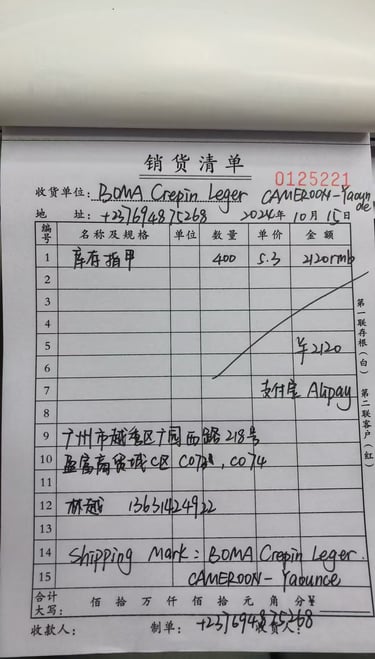 销货清单
0125221
收货单位: BOMA Crepin Leger CAMEROON-Yaounde
地 址: +237694875268 2024年10月15日
编号 名称及规格 单位 数量 单价 金额
1 库存指甲 400 5.3 2120rmb
2
3
4
5 ¥2120
6
7 支付宝 Alipay
8
9 广州市越秀区广园西路218号
10 盈富商贸城C区 C073, C074
11
12 林越 13631424922
13
14 Shipping Mark: BOMA Crepin Leger.
15 CAMEROON-Yaounce
合计大写: 佰 拾 万 仟 佰 拾 元 角 分¥
+237694875268
收款人: 制单: 收货人:
第一联存根(白) 第二联客户(红)